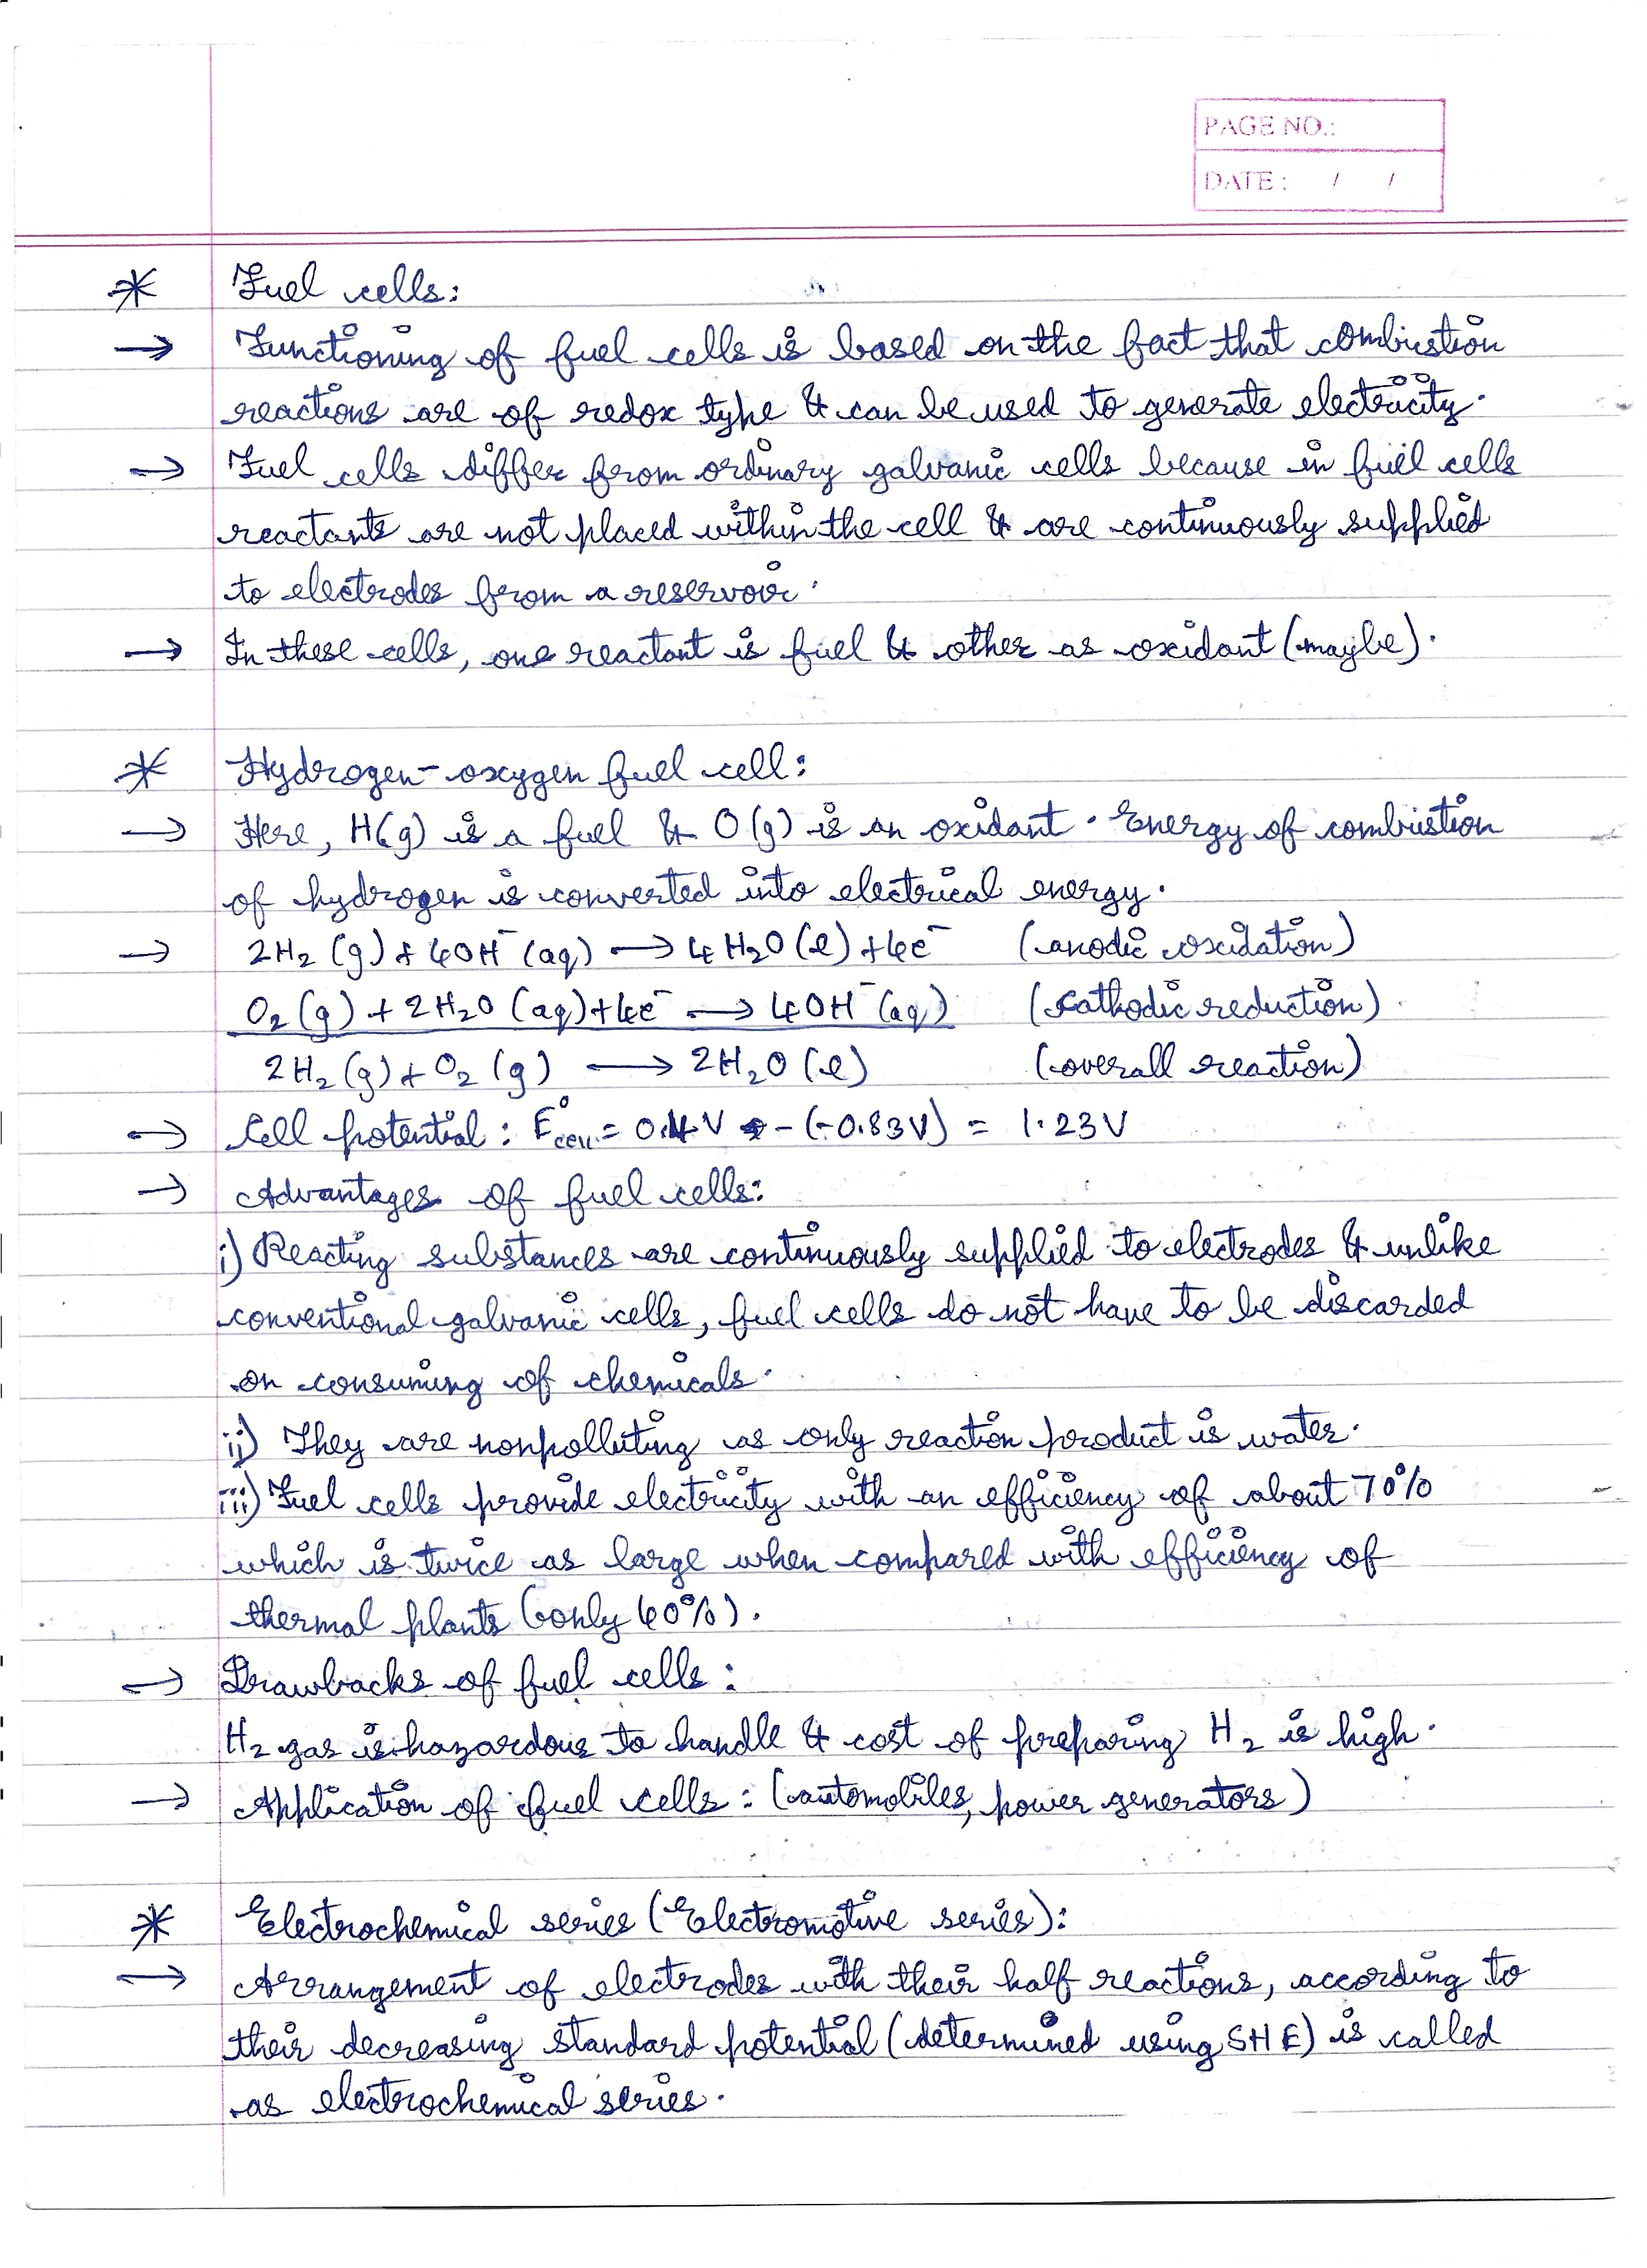 PAGE NO.:
DATE : / /
* Fuel cells:
→ Functioning of fuel cells is based on the fact that combustion
reactions are of redox type & can be used to generate electricity.
→ Fuel cells differ from ordinary galvanic cells because in fuel cells
reactants are not placed within the cell & are continuously supplied
to electrodes from a reservoir.
→ In these cells, one reactant is fuel & other as oxidant (maybe).
* Hydrogen-oxygen fuel cell:
→ Here, H(g) is a fuel & O(g) is an oxidant. Energy of combustion
of hydrogen is converted into electrical energy.
→ 2H₂ (g) + 4OH⁻ (aq) → 4H₂O (l) + 4e⁻ (anodic oxidation)
O₂ (g) + 2H₂O (aq) + 4e⁻ → 4OH⁻ (aq) (cathodic reduction)
2H₂ (g) + O₂ (g) → 2H₂O (l) (overall reaction)
→ Cell potential : E°cell = 0.4V - (-0.83V) = 1.23V
→ Advantages of fuel cells:
i) Reacting substances are continuously supplied to electrodes & unlike
conventional galvanic cells, fuel cells do not have to be discarded
on consuming of chemicals.
ii) They are nonpolluting as only reaction product is water.
iii) Fuel cells provide electricity with an efficiency of about 70%
which is twice as large when compared with efficiency of
thermal plants (only 40%).
→ Drawbacks of fuel cells :
H₂ gas is hazardous to handle & cost of preparing H₂ is high.
→ Application of fuel cells : (automobiles, power generators)
* Electrochemical series (Electromotive series):
→ Arrangement of electrodes with their half reactions, according to
their decreasing standard potential (determined using SHE) is called
as electrochemical series.